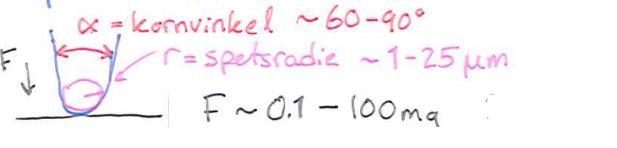 α = kornvinkel ~60-90°
r = spetsradie ~ 1-25 μm
F
F ~ 0.1 - 100mg